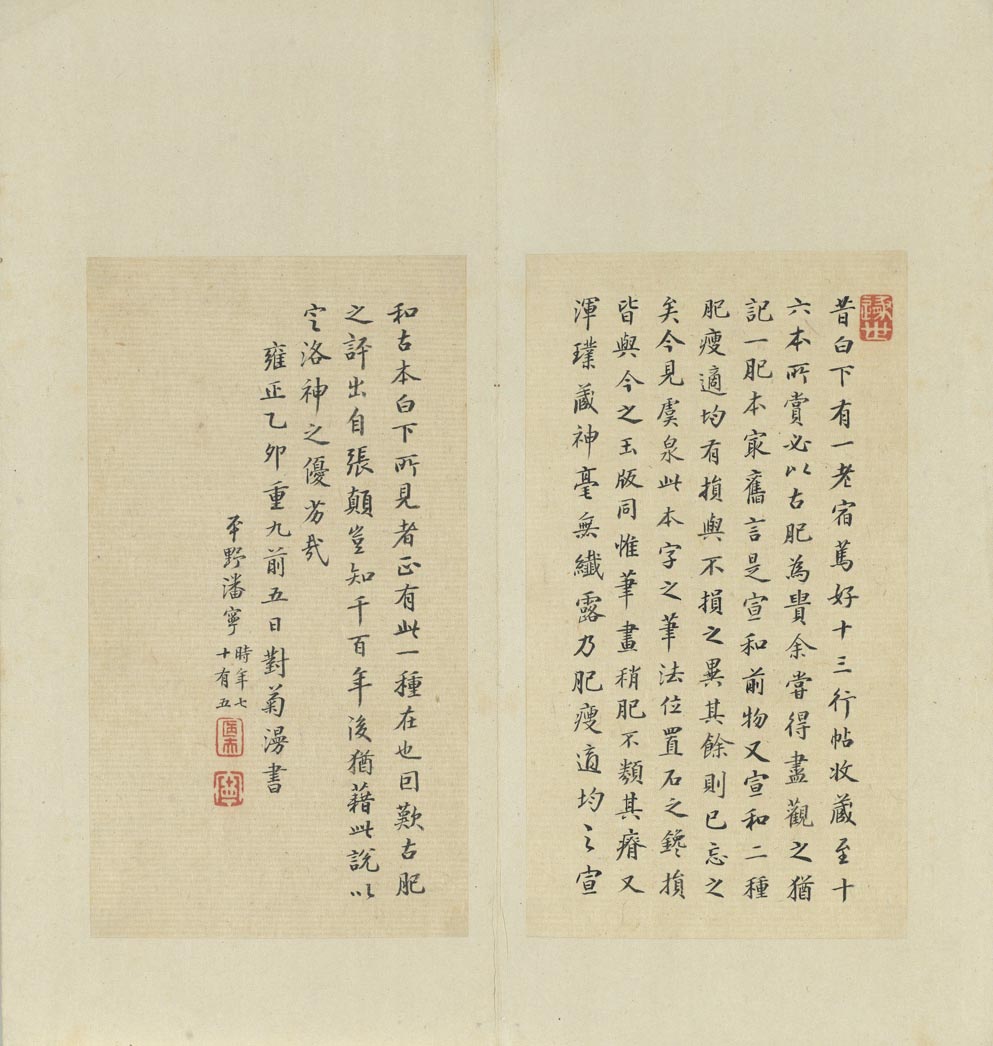 昔白下有一老宿篤好十三行帖收藏至十
六本所賞必以古肥為貴余嘗得盡觀之猶
記一肥本家舊言是宣和前物又宣和二種
肥瘦適均有損與不損之異其餘則已忘之
矣今見虞泉此本字之筆法位置石之鑱損
皆與今之玉版同惟筆畫稍肥不類其瘠又
渾璞藏神毫無纖露乃肥瘦適均之宣
和古本白下所見者正有此一種在也因歎古肥
之評出自張顛豈知千百年後猶藉此說以
定洛神之優劣哉
雍正乙卯重九前五日對菊漫書
平野潘寧
時年七
十有五
寧